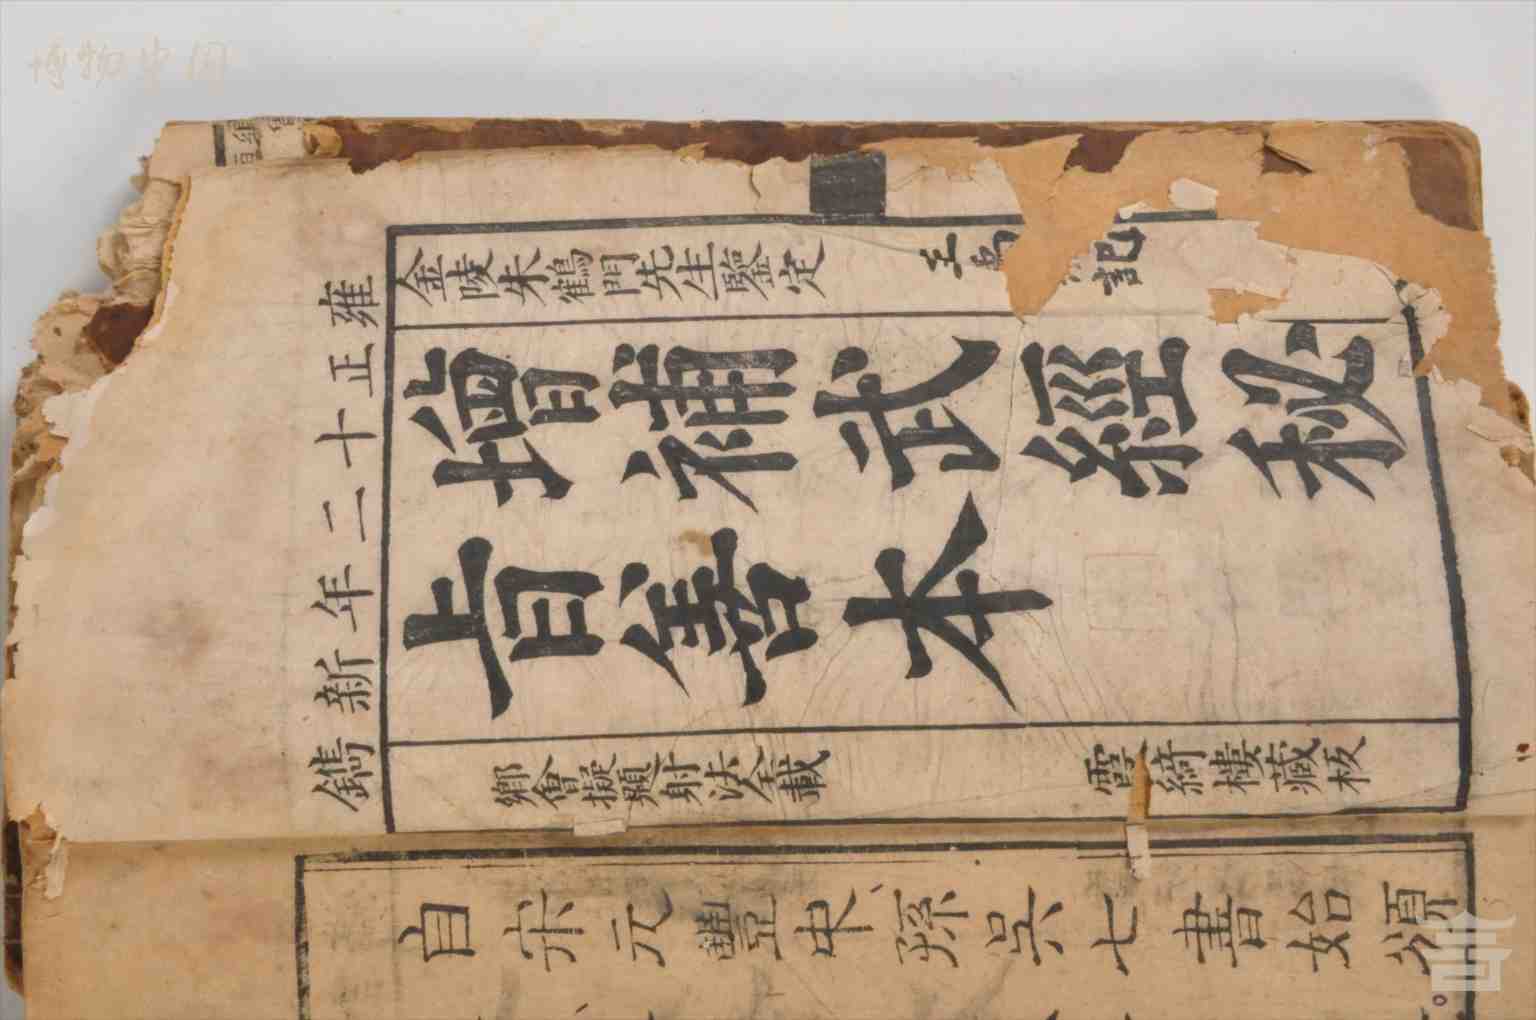 博物中国
雍正十二年新鐫
金陵朱鶴門先生鑒定
王 記
增補武經秘
旨善本
鄉會擬題射法全載
霞綺樓藏板
自宋元豐中孫吳七書始頒